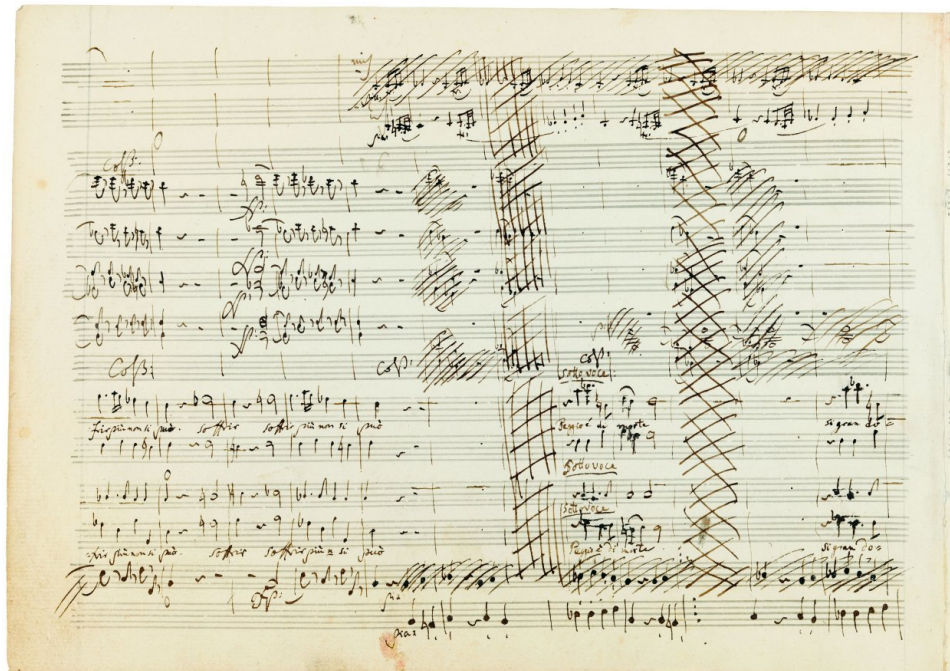 Col B:
fp:
fp:
fp:
Col B: Col B: Col B:
Sotto voce
frir più non si può. soffrir soffrir più non si può Peggio è di morte si gran do=
Sotto voce
Sotto voce
=frir più non si può soffrir soffrir più n: si può Peggio è di morte si gran do=
fp:
pia: